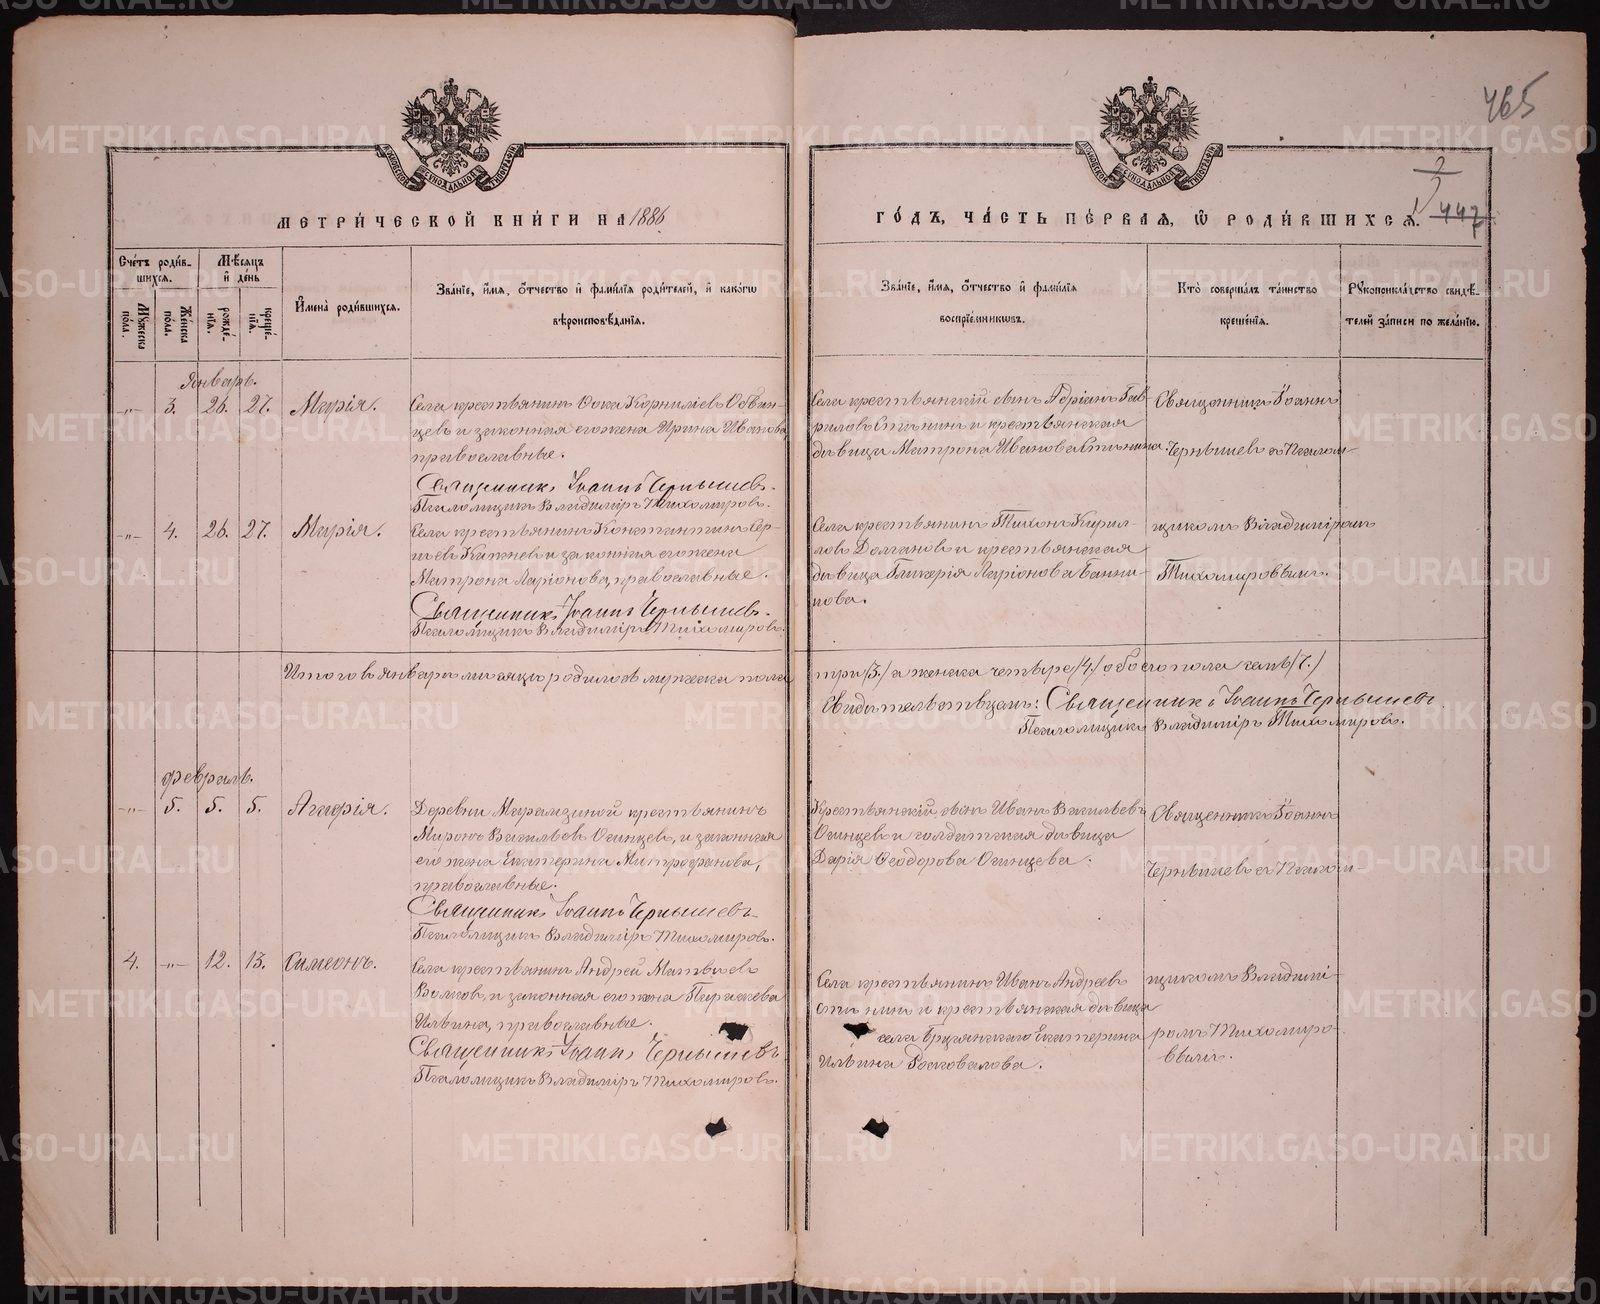 465
447
МЕТРИ́ЧЕСКОЙ КНИ́ГИ НА 1886
ГО́ДЪ, ЧА́СТЬ ПЕ́РВАЯ, Ѡ РОДИ́ВШИХСЯ.
Сче́тъ роди́в-
шихся.
Мꙋжеска по́ла.
Же́нска по́ла.
Мѣ́сяцъ
и҆ де́нь
рожде́-
нїя.
креще́-
нїя.
И҆мена̀ роди́вшихся.
Зва́нїе, и҆́мя, о҆́тчество и҆ фами́лїя роди́телей, и҆ како́гѡ
вѣроисповѣ́данїя.
Зва́нїе, и҆́мя, о҆́тчество и҆ фами́лїя
воспрїе́мникѡвъ.
Кто̀ соверша́лъ та́инство
креще́нїя.
Рꙋкоприкла́дство свидѣ́-
телей за́писи по жела́нїю.
Январь.
-„- 3. 26. 27. Марія.
Села крестьянинъ Ѳока Корниліевъ Обвин-
цевъ и законная его жена Ирина Иванова
православные.
Священникъ Іоаннъ Чернышевъ.
Псаломщикъ Владиміръ Тихомировъ.
Села крестьянскій сынъ Адріанъ Гав-
риловъ Стынинъ и крестьянская
дѣвица Матрона Иванова Стынина.
Священникъ Іоаннъ
Чернышевъ съ Псалом-
-„- 4. 26. 27. Марія.
Села крестьянинъ Константинъ Сер-
гѣевъ и законная его жена
Матрона Ларіонова, православные.
Священникъ Іоаннъ Чернышевъ.
Псаломщикъ Владиміръ Тихомировъ.
Села крестьянинъ Тихонъ Кирил-
ловъ Долгановъ и крестьянская
дѣвица Гликерія Ларіонова Банни-
кова.
щикомъ Владиміромъ
Тихомировымъ.
Итого въ январѣ мѣсяцѣ родилось мужеска пола
три /3./ а женска четыре /4./ обоего пола семь /7./
Свидѣтельствуемъ: Священникъ Іоаннъ Чернышевъ.
Псаломщикъ Владиміръ Тихомировъ.
Февраль.
-„- 5. 5. 5. Агафія.
Деревни Марамзиной крестьянинъ
Миронъ Васильевъ Осинцевъ, и законная
его жена Екатерина Митрофанова,
православные.
Священникъ Іоаннъ Чернышевъ
Псаломщикъ Владиміръ Тихомировъ.
Крестьянскій сынъ Иванъ Васильевъ
Осинцевъ и солдатская дѣвица
Дарія Ѳеодорова Осинцева.
Священникъ Іоаннъ
Чернышевъ съ Псалом
4. -„- 12. 13. Симеонъ.
Села крестьянинъ Андрей Матвѣевъ
Волковъ, и законная его жена Параскева
Ильина, православные.
Священникъ Іоаннъ Чернышевъ.
Псаломщикъ Владиміръ Тихомировъ.
Села крестьянинъ Иванъ Андреевъ
и крестьянская дѣвица
села Екатерина
Ильина Рокавалова.
щикомъ Владимі-
ромъ Тихомиро-
вымъ.